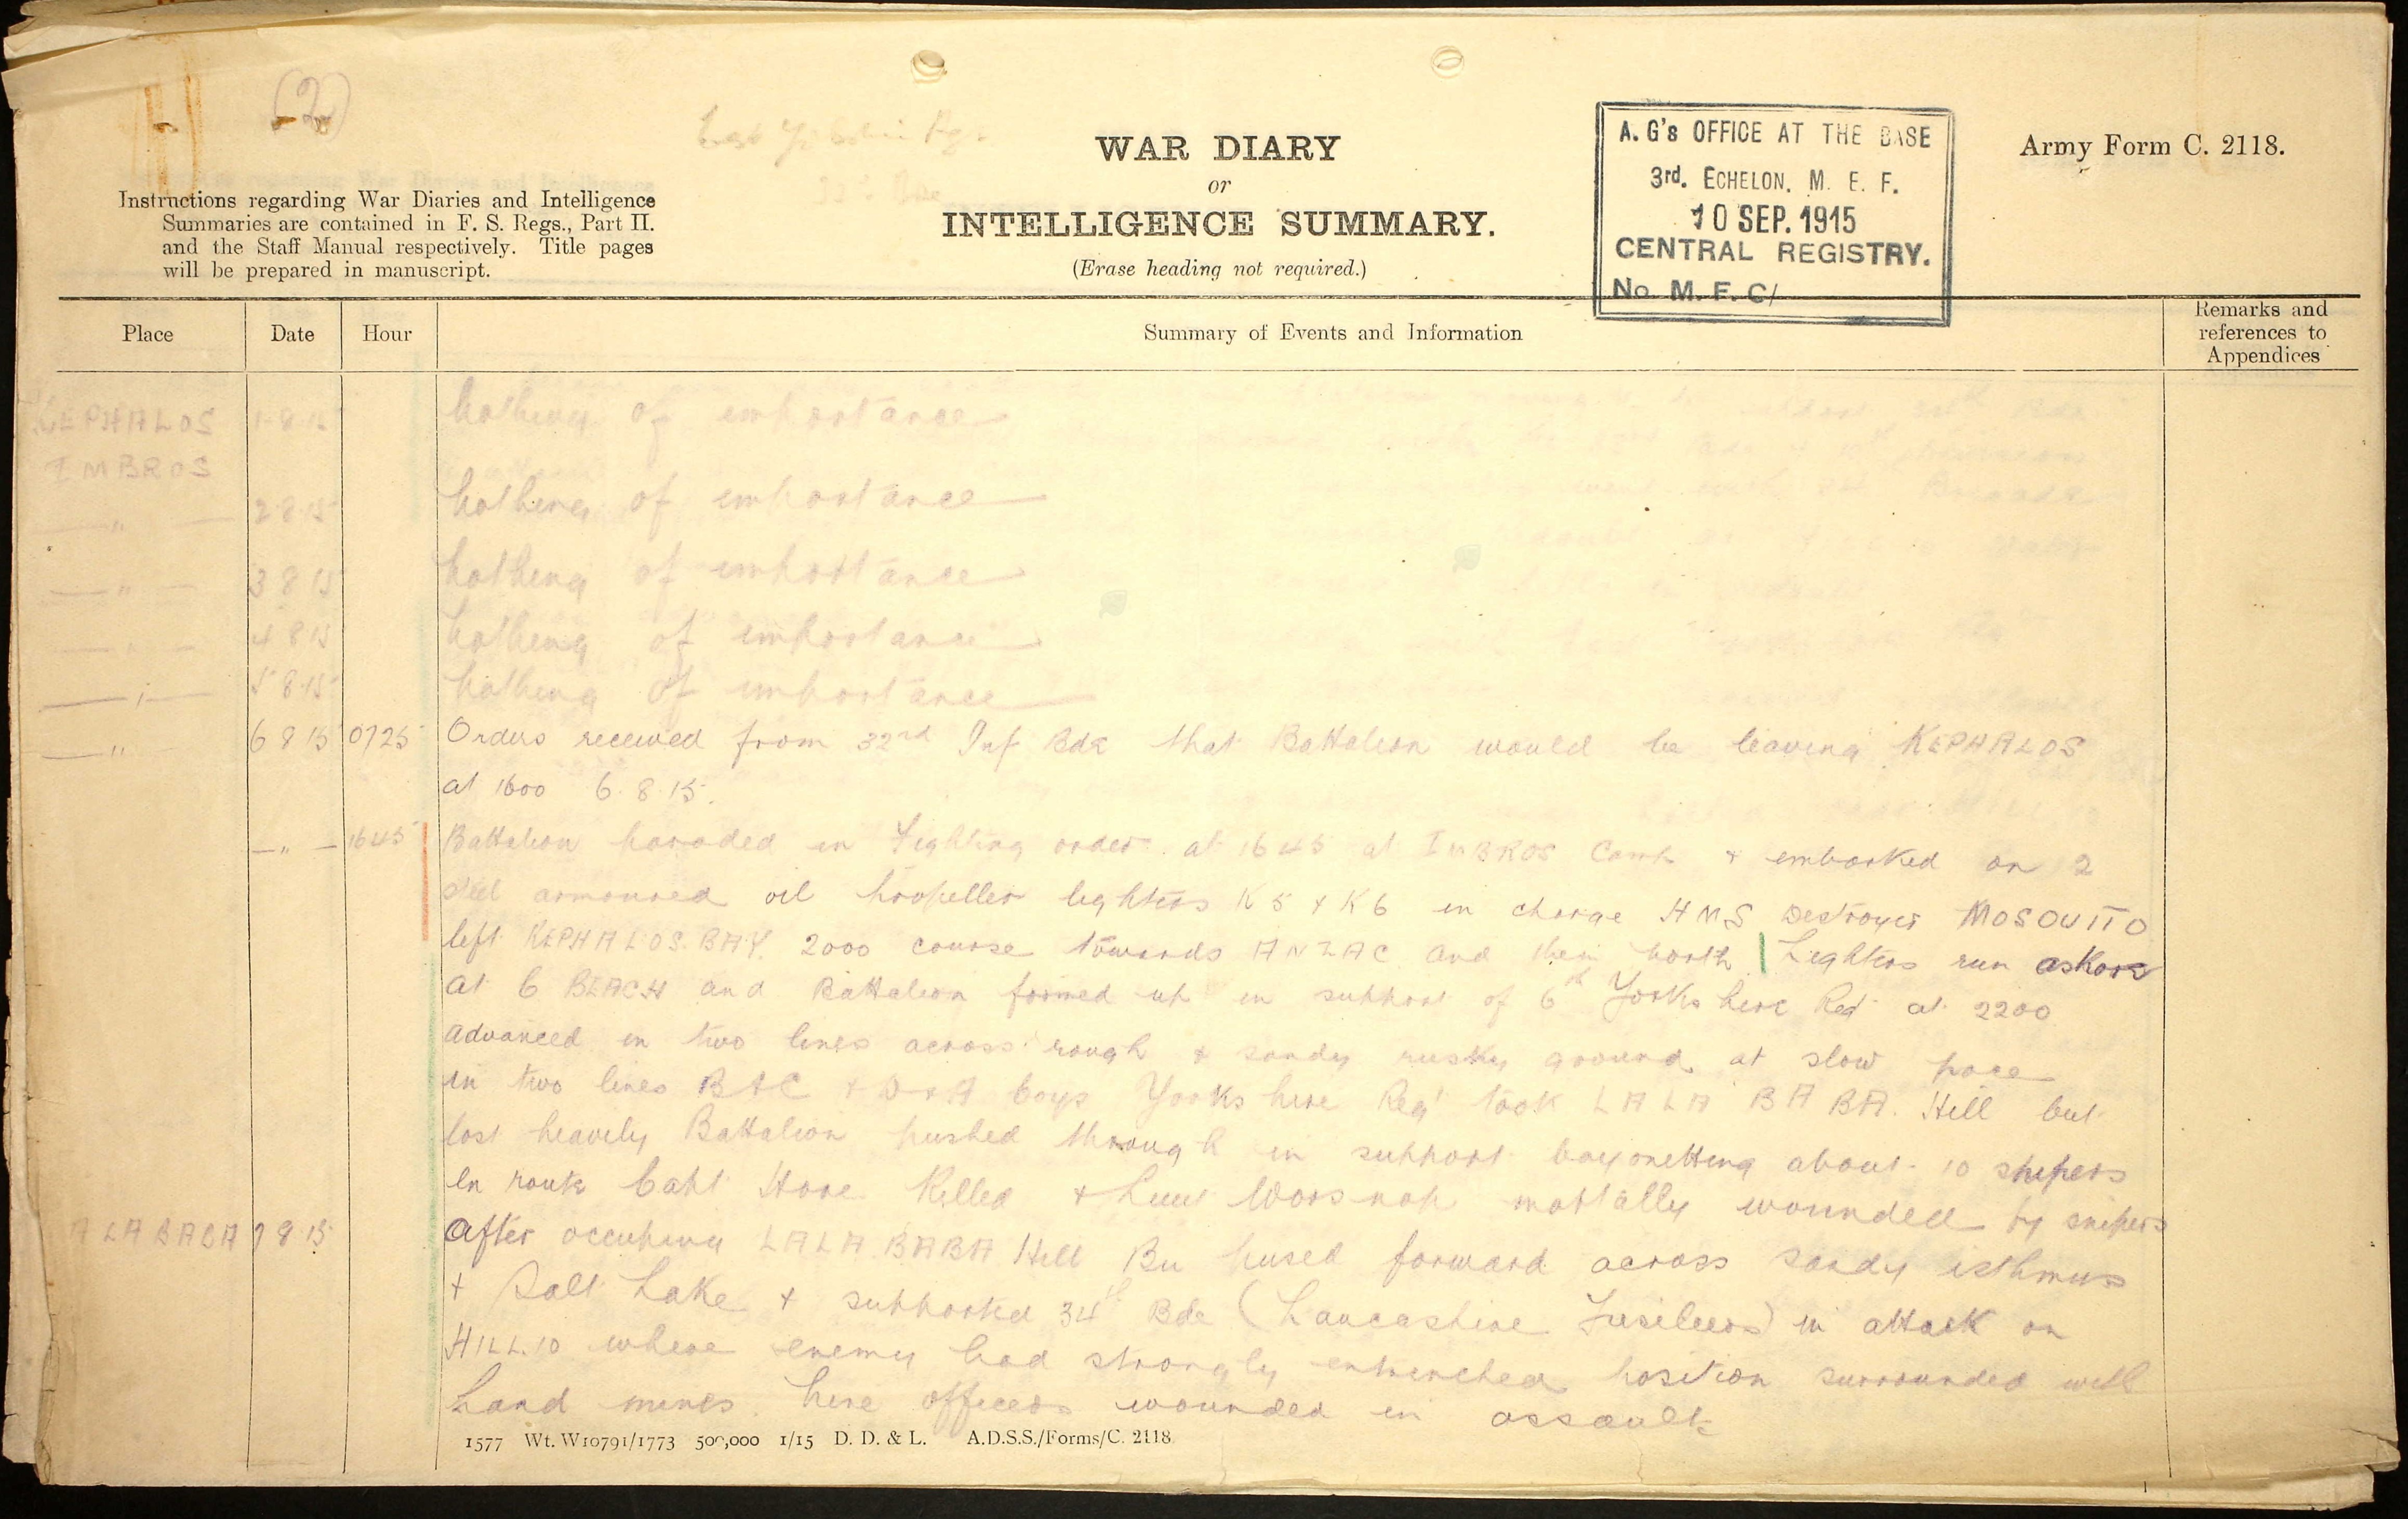 (2)
WAR DIARY
or
INTELLIGENCE SUMMARY.
(Erase heading not required.)
A. G's OFFICE AT THE BASE
3rd. ECHELON. M. E. F.
10 SEP. 1915
CENTRAL REGISTRY.
No. M. F. C/
Army Form C. 2118.
Instructions regarding War Diaries and Intelligence
Summaries are contained in F. S. Regs., Part II.
and the Staff Manual respectively. Title pages
will be prepared in manuscript.
Place Date Hour Summary of Events and Information Remarks and references to Appendices
KEPHALOS 1-8-15 Nothing of importance
IMBROS
" 2 8 15 Nothing of importance
" 3 8 15 Nothing of importance
" 4 8 15 Nothing of importance
" 5 8 15 Nothing of importance
" 6 8 15 0725 Orders received from 32nd Inf Bde that Battalion would be leaving KEPHALOS
at 1600 6.8.15.
" 1645 Battalion paraded in Fighting order at 1645 at IMBROS Camp & embarked on 2
steel armoured oil propeller lighters K5 & K6 in charge HMS Destroyer MOSQUITO
left KEPHALOS BAY 2000 course towards ANZAC and then North Lighters run ashore
at C BEACH and Battalion formed up in support of 6th Yorkshire Regt at 2200
advanced in two lines across rough & sandy rusky ground at slow pace
in two lines B & C & D & A Coys Yorkshire Regt took LALA BABA Hill but
lost heavily Battalion pushed through in support bayonetting about 10 snipers
en route Capt Hore Killed & Lieut Worsnop mortally wounded by snipers
LALA BABA 7 8 15 After occupying LALA BABA Hill Bn pused forward across sandy isthmus
& Salt Lake & supported 34th Bde (Lancashire Fusiliers) in attack on
HILL 10 where enemy had strongly entrenched position surrounded with
Land mines. Nine officers wounded in assault
1577 Wt. W10791/1773 500,000 1/15 D. D. & L. A.D.S.S./Forms/C. 2118.